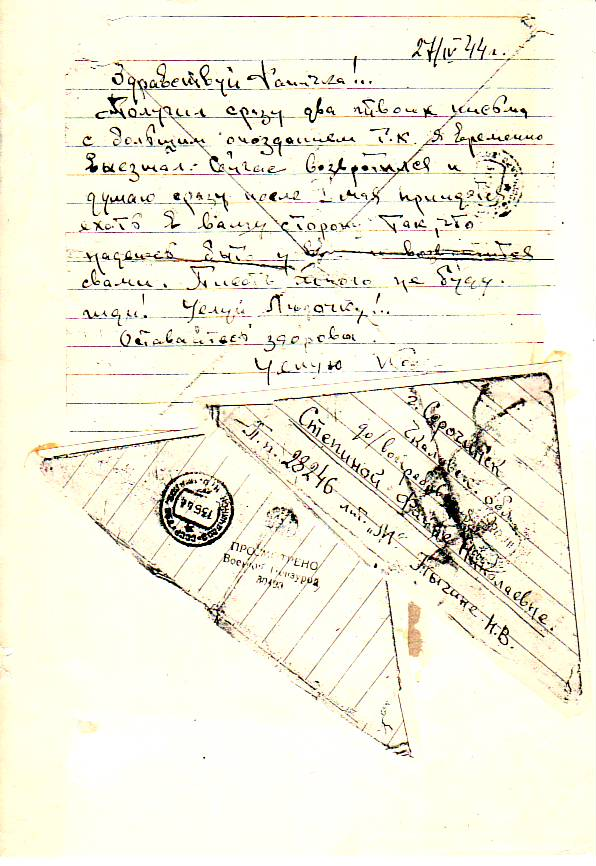 27/IV 44 г.
Здравствуй Фаичка!...
Получил сразу два твоих письма
с большим опозданием т.к. я временно
выезжал. Сейчас возвротился и
думаю сразу после 1 мая придется
ехать в вашу сторону. Так, что
надеюсь быть у
свами. Писать много не буду.
жди! Целуй Лидочку!..
Оставайтесь здоровы.
Целую
г. Сорочинск
Чкаловской обл.
до востребования
Степиной Фаине Николаевне.
П.п. 28246 лит. "И"
Н.В.
ПРОСМОТРЕНО
Военной Цензурой